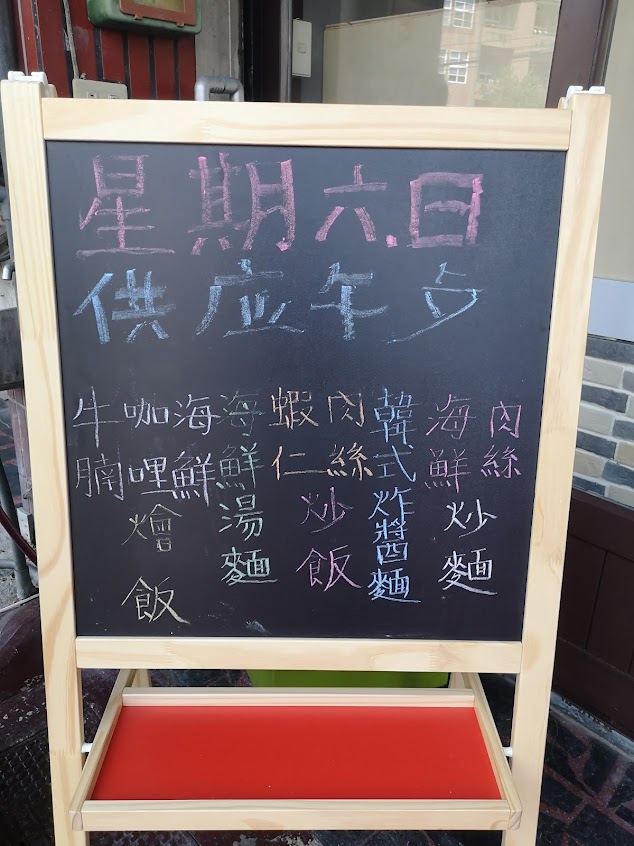 星期六.日
供应午歺
肉絲
海鮮
炒麵
韓式炸醬麵
肉絲
蝦仁
炒飯
海鮮湯麵
海鮮
咖哩
牛腩
燴飯